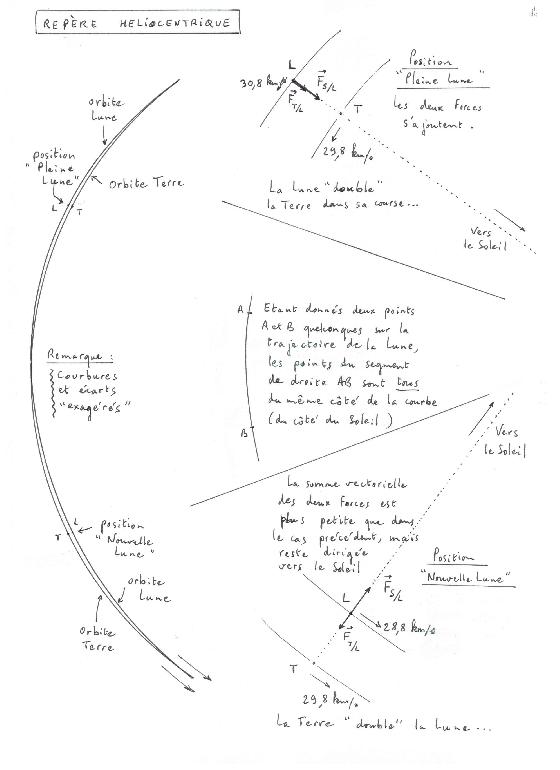 REPÈRE HELIOCENTRIQUE
orbite
Lune
position
"Pleine
Lune"
orbite Terre
L
T
Remarque :
Courbures
et écarts
"exagérés"
L
T
position
"Nouvelle
Lune"
orbite
Lune
orbite
Terre
L
30,8 km/s
F S/L
F T/L
T
29,8 km/s
Position
"Pleine Lune"
les deux forces
s'ajoutent.
La Lune "double"
la Terre dans sa course...
Vers
le Soleil
A
B
Etant donnés deux points
A et B quelconques sur la
trajectoire de la Lune,
les points du segment
de droite AB sont tous
du même côté de la courbe
(du côté du Soleil)
Vers
le Soleil
La somme vectorielle
des deux forces est
plus petite que dans
le cas précédent, mais
reste dirigée
vers le Soleil
Position
"Nouvelle Lune"
L
F S/L
28,8 km/s
F T/L
T
29,8 km/s
La Terre "double" la Lune...